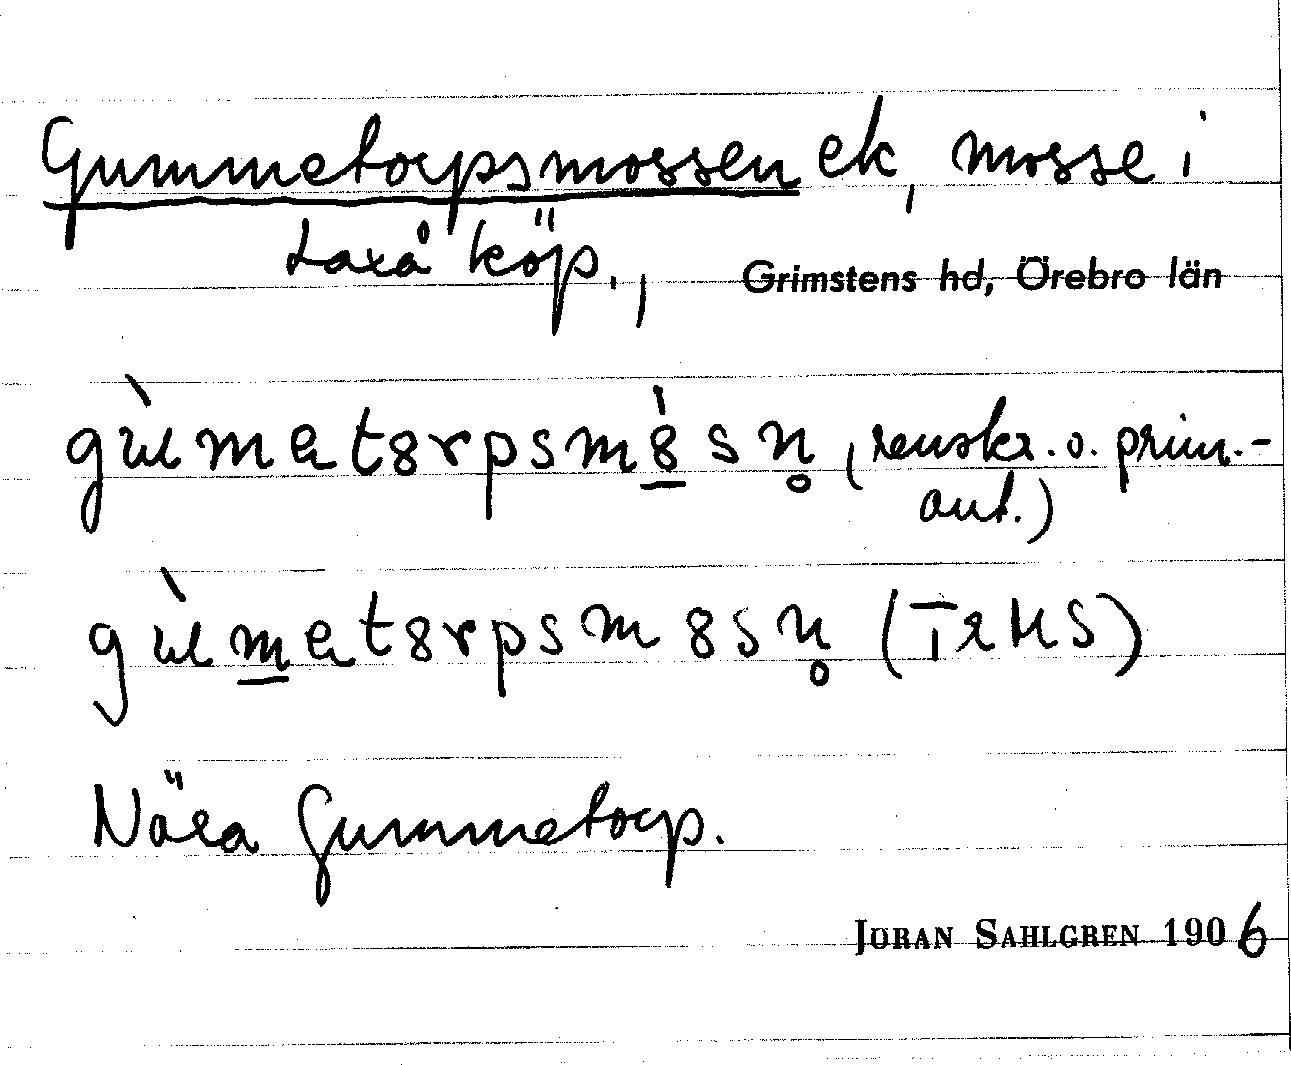 Gummetorpsmossen ek, mosse i
Laxå köp.,
Grimstens hd, Örebro län
gɯ̀matȣrpsmȣ̀sn̥ (renskr. o. prim.-
ant.)
gɯ̀m̲atȣrpsmȣsn̥
Nära Gummetorp.
JÖRAN SAHLGREN 1906